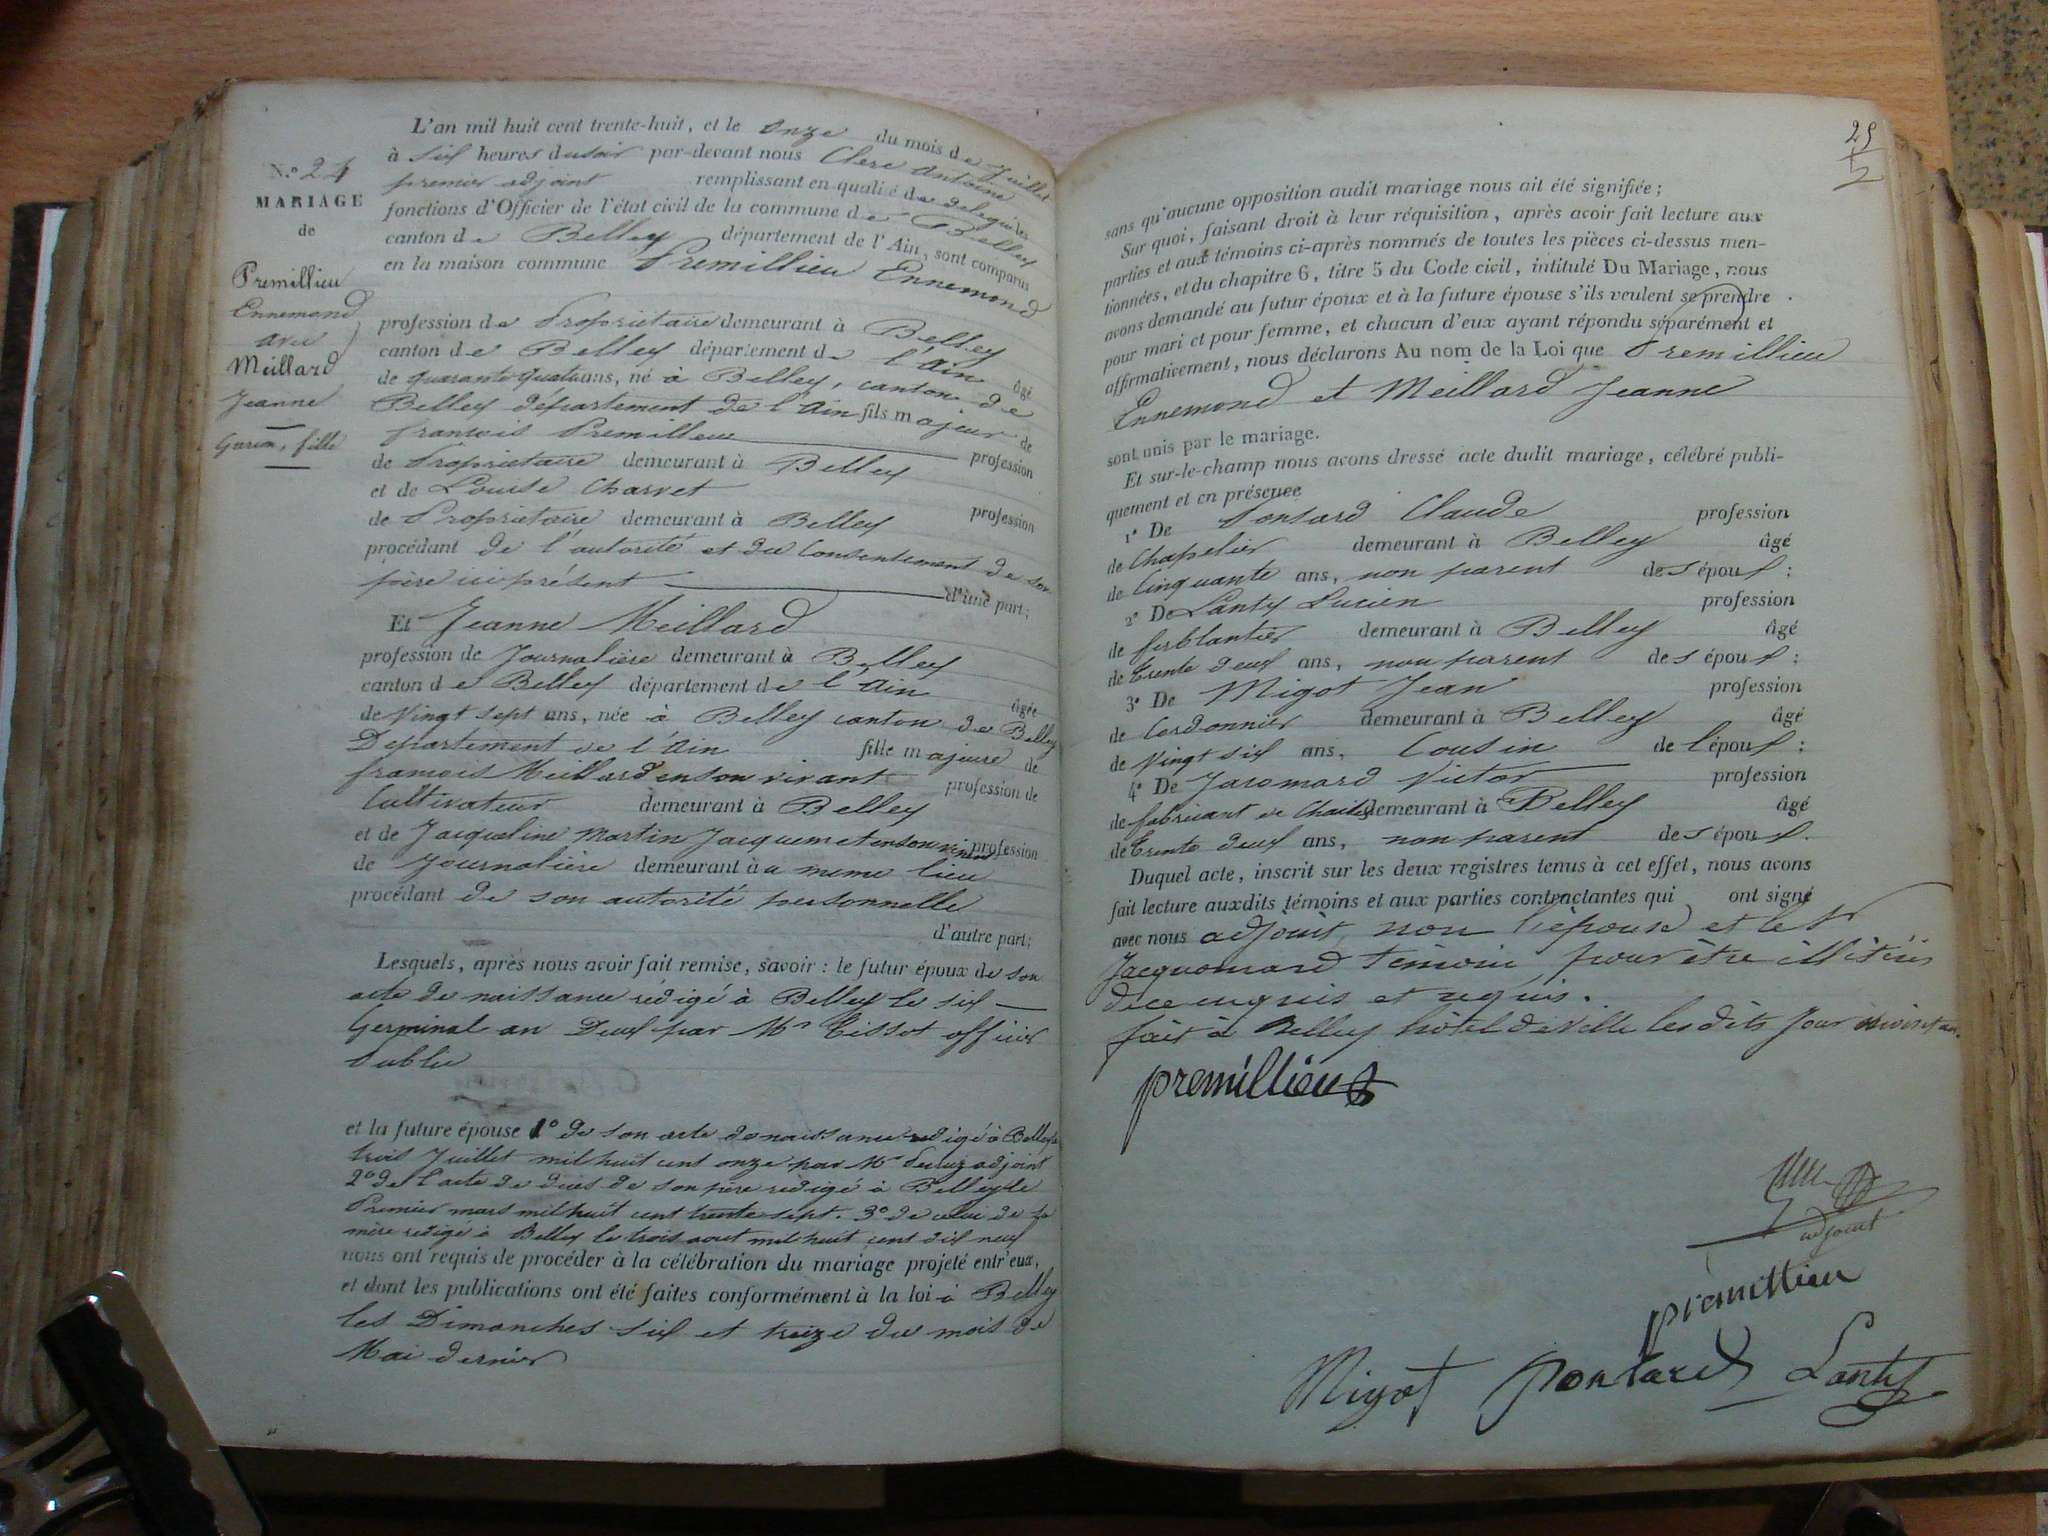 N.° 24
MARIAGE
de
Premillieu
Ennemond
avec
Meillard
Jeanne
Garçon, fille
L'an mil huit cent trente-huit, et le onze du mois de Juillet
à six heures du soir par-devant nous Clerc Antoine
premier adjoint remplissant en qualité de délégué les
fonctions d'Officier de l'état civil de la commune de Belley
canton de Belley département de l'Ain, sont comparus
en la maison commune Premillieu Ennemond
profession de Propriétaire demeurant à Belley
canton de Belley département de l'Ain âgé
de quarante quatre ans, né à Belley, canton de
Belley département de l'Ain fils majeur de
françois Premillieu profession
de Propriétaire demeurant à Belley
et de Louise Charvet profession
de Propriétaire demeurant à Belley
procédant de l'autorité et du Consentement de son
père ici présent d'une part;
Et Jeanne Meillard
profession de Journalière demeurant à Belley
canton de Belley département de l'Ain âgée
de Vingt sept ans, née à Belley canton de Belley
Département de l'Ain fille majeure de
francois Meillard en son vivant profession de
Cultivateur demeurant à Belley
et de Jacqueline Martin Jacquemet en son vivant profession
de Journalière demeurant au meme lieu
procédant de son autorité personnelle
d'autre part;
Lesquels, après nous avoir fait remise, savoir: le futur époux de son
acte de naissance rédigé à Belley le six
Germinal an Deux par Mr Tissot officier
Public
et la future épouse 1° de son acte de naissance redigé à Belley le
trois Juillet mil huit cent onze par Mr adjoint
2° de l'acte de décès de son père redigé à Belley le
Premier mars mil huit cent trente sept. 3° de celui de sa
mère redigé à Belley le trois aout mil huit cent dix neuf
nous ont requis de procéder à la célébration du mariage projeté entr'eux,
et dont les publications ont été faites conformément à la loi à Belley
les Dimanches six et treize du mois de
Mai dernier
25
2
sans qu'aucune opposition audit mariage nous ait été signifiée;
Sur quoi, faisant droit à leur réquisition, après avoir fait lecture aux
parties et aux témoins ci-après nommés de toutes les pièces ci-dessus men-
tionnées, et du chapitre 6, titre 5 du Code civil, intitulé Du Mariage, nous
avons demandé au futur époux et à la future épouse s'ils veulent se prendre
pour mari et pour femme, et chacun d'eux ayant répondu séparément et
affirmativement, nous déclarons Au nom de la Loi que Premillieu
Ennemond et Meillard Jeanne
sont unis par le mariage.
Et sur-le-champ nous avons dressé acte dudit mariage, célébré publi-
quement et en présence
1° De Ponsard Claude profession
de Chapelier demeurant à Belley âgé
de Cinquante ans, non parent des époux;
2° De Lanty Lucien profession
de ferblantier demeurant à Belley âgé
de Trente deux ans, non parent des époux;
3° De Migot Jean profession
de Cordonnier demeurant à Belley âgé
de Vingt six ans, Cousin de l'époux;
4° De Jacomard Victor profession
de fabricant de Chaises demeurant à Belley âgé
de Trente deux ans, non parent des époux.
Duquel acte, inscrit sur les deux registres tenus à cet effet, nous avons
fait lecture auxdits témoins et aux parties contractantes qui ont signé
avec nous adjoint, non l'épouse et le Sr
Jacquomard témoin, pour être illitérés
de ce enquis et requis.
fait à Belley hôtel de Ville les dits jour mois et an.
premillieu
adjoint
premillieu
Migot Ponsard Lanty